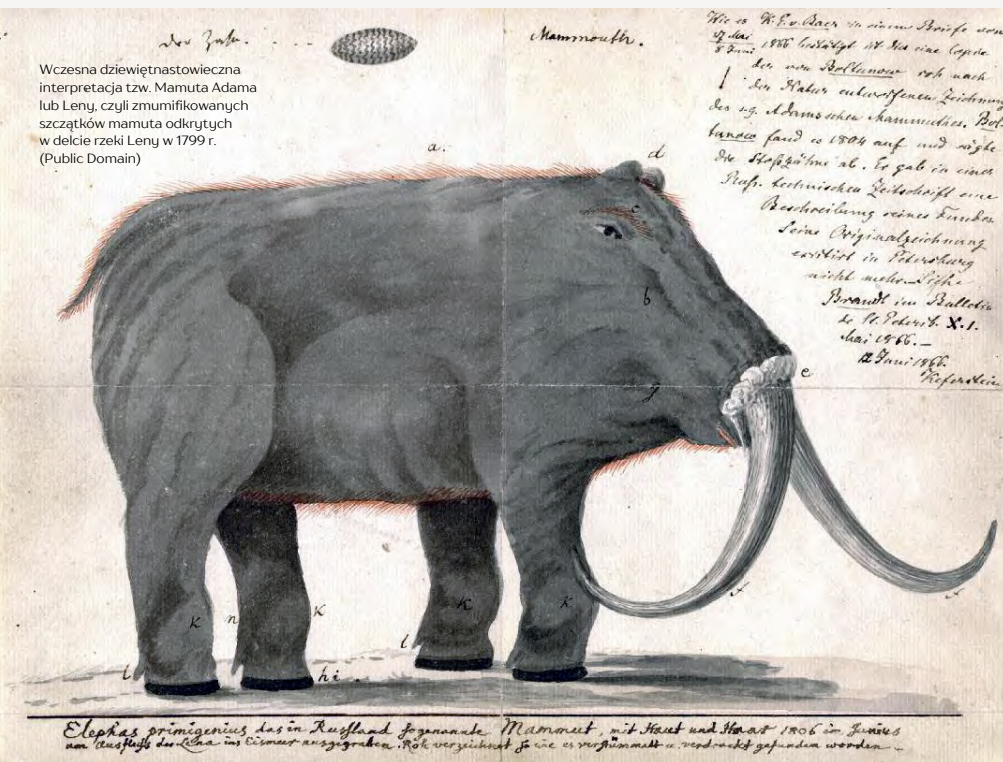 der Zahn. . . . .
Mammouth.
Wczesna dziewiętnastowieczna
interpretacja tzw. Mamuta Adama
lub Leny, czyli zmumifikowanych
szczątków mamuta odkrytych
w delcie rzeki Leny w 1799 r.
(Public Domain)
Wie es K. E. v. Baer in einem Briefe vom
27 Mai
8 Juni 1866 bestätigt ist dies eine Copie
der von Boltunow roh nach
der Natur entworfenen Zeichnung
des s.g. Adamsschen Mammuthes. Bol-
tunow fand es 1804 auf und sägte
die Stoßzähne ab. Er gab in einer
Russ. technischen Zeitschrift eine
Beschreibung seines Fundes
Seine Originalzeichnung
existirt in Petersburg
nicht mehr. Siehe
Brandt im Bulletin
de St. Petersb. X. 1.
Mai 1866.—
12 Juni 1866.
Keferstein
a.
d
c
b
e
g
f
f
k
n
k
k
k
l
l
h i .
Elephas primigenius das in Russland sogenannte Mammut, mit Haut und Haar 1806 im Junius
am Ausfluss der Lena ins Eismeer ausgegraben. Roh verzeichnet so wie es verstümmelt u. verdrockt gefunden worden